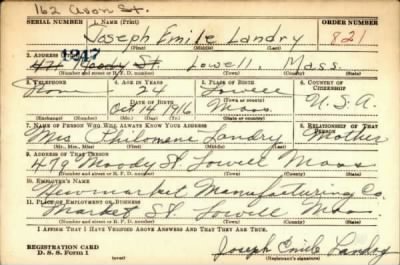 162 Avon St.
SERIAL NUMBER 1. NAME (Print) ORDER NUMBER
Joseph Emile Landry 821
(First) (Middle) (Last)
1247
2. ADDRESS (Print)
474 Moody St. Lowell, Mass.
(Number and street or R. F. D. number) (Town) (County) (State)
3. TELEPHONE 4. AGE IN YEARS 5. PLACE OF BIRTH 6. COUNTRY OF CITIZENSHIP
None 24 Lowell
DATE OF BIRTH (Town or county) U.S.A.
Oct. 14 1916 Mass
(Exchange) (Number) (Mo.) (Day) (Yr.) (State or country)
7. NAME OF PERSON WHO WILL ALWAYS KNOW YOUR ADDRESS 8. RELATIONSHIP OF THAT PERSON
Mrs Philomene Landry Mother
(Mr., Mrs., Miss) (First) (Middle) (Last)
9. ADDRESS OF THAT PERSON
474 Moody St. Lowell Mass
(Number and street or R. F. D. number) (Town) (County) (State)
10. EMPLOYER'S NAME
Newmarket Manufacturing Co.
11. PLACE OF EMPLOYMENT OR BUSINESS
Market St. Lowell Mass.
(Number and street or R. F. D. number) (Town) (County) (State)
I AFFIRM THAT I HAVE VERIFIED ABOVE ANSWERS AND THAT THEY ARE TRUE.
REGISTRATION CARD
D. S. S. Form 1 Joseph Emile Landry
(Registrant's signature)